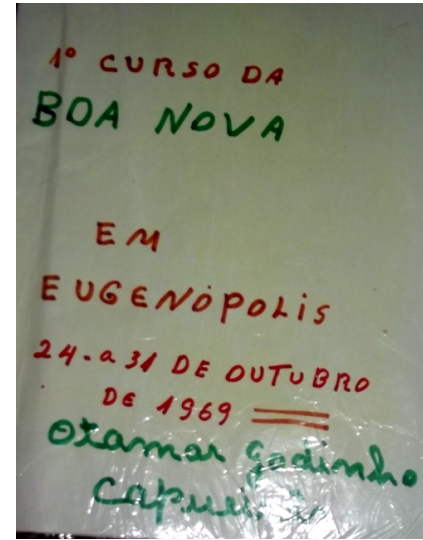 1º CURSO DA
BOA NOVA
EM
EUGENÓPOLIS
24. a 31 DE OUTUBRO
DE 1969
Otamar Godinho